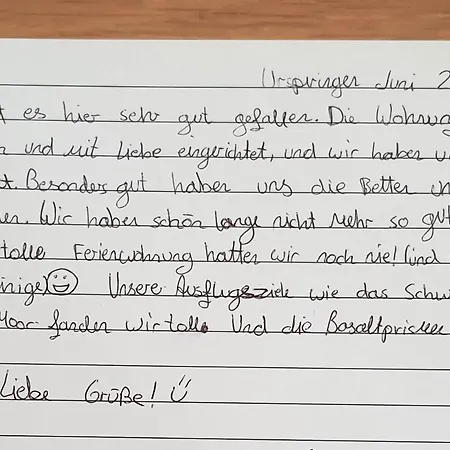 Urspringen Juni 2
es hier sehr gut gefallen. Die Wohnu
und mit Liebe eingerichtet, und wir haben
Besonders gut haben uns die Betten
Wir haben schön lange nicht mehr so gut
tolle Ferienwohnung hatten wir noch nie! (und
Unsere Ausflugsziele wie das Schw
Moor fanden wir toll. Und die Basaltprismen
Liebe Grüße!